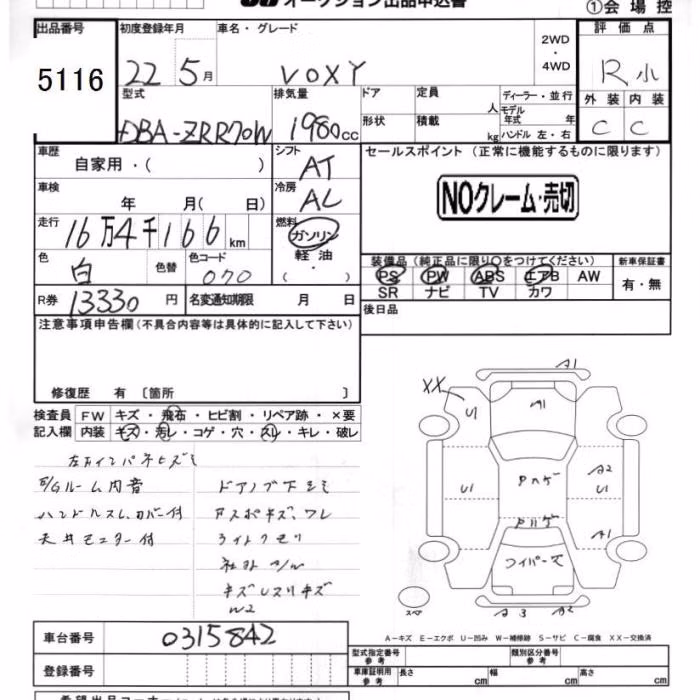 オークション出品申込書
①会場控
出品番号 初度登録年月 車名・グレード 2WD・4WD 評価点
5116 22年5月 VOXY R小
型式 排気量 ドア 定員 人 ディーラー・並行 外装 内装
DBA-ZRR70W 1980cc 形状 積載 kg モデル年式 年 ハンドル 左・右 C C
車歴 自家用・( ) シフト AT セールスポイント(正常に機能するものに限ります)
車検 年 月( 日) 冷房 AC NOクレーム・売切
走行 16万4千166km 燃料 ガソリン・軽油・( )
色 白 色替 色コード 070 装備品(純正品に限り○をつけてください) 新車保証書
PS PW ABS エアB AW 有・無
SR ナビ TV カワ
R券 13330円 名変通知期限 月 日 後日品
注意事項申告欄(不具合内容等は具体的に記入して下さい)
修復歴 有〔箇所 〕
検査員 FW キズ・飛石・ヒビ割・リペア跡・×要
記入欄 内装 キズ・汚レ・コゲ・穴・スリ・キレ・破レ
E/Gルーム内音 ドアノブ下キズ
天井モニター付 ライトクモリ
W2
XX U1 A1 A1
U1 A2 U1
ワイパー欠 A1
A3 A2
A-キズ E-エクボ U-凹み W-補修跡 S-サビ C-腐食 XX-交換済
車台番号 0315842 型式指定番号 参考 類別区分番号 参考
登録番号 車庫証明用 参考 長さ 幅 高さ